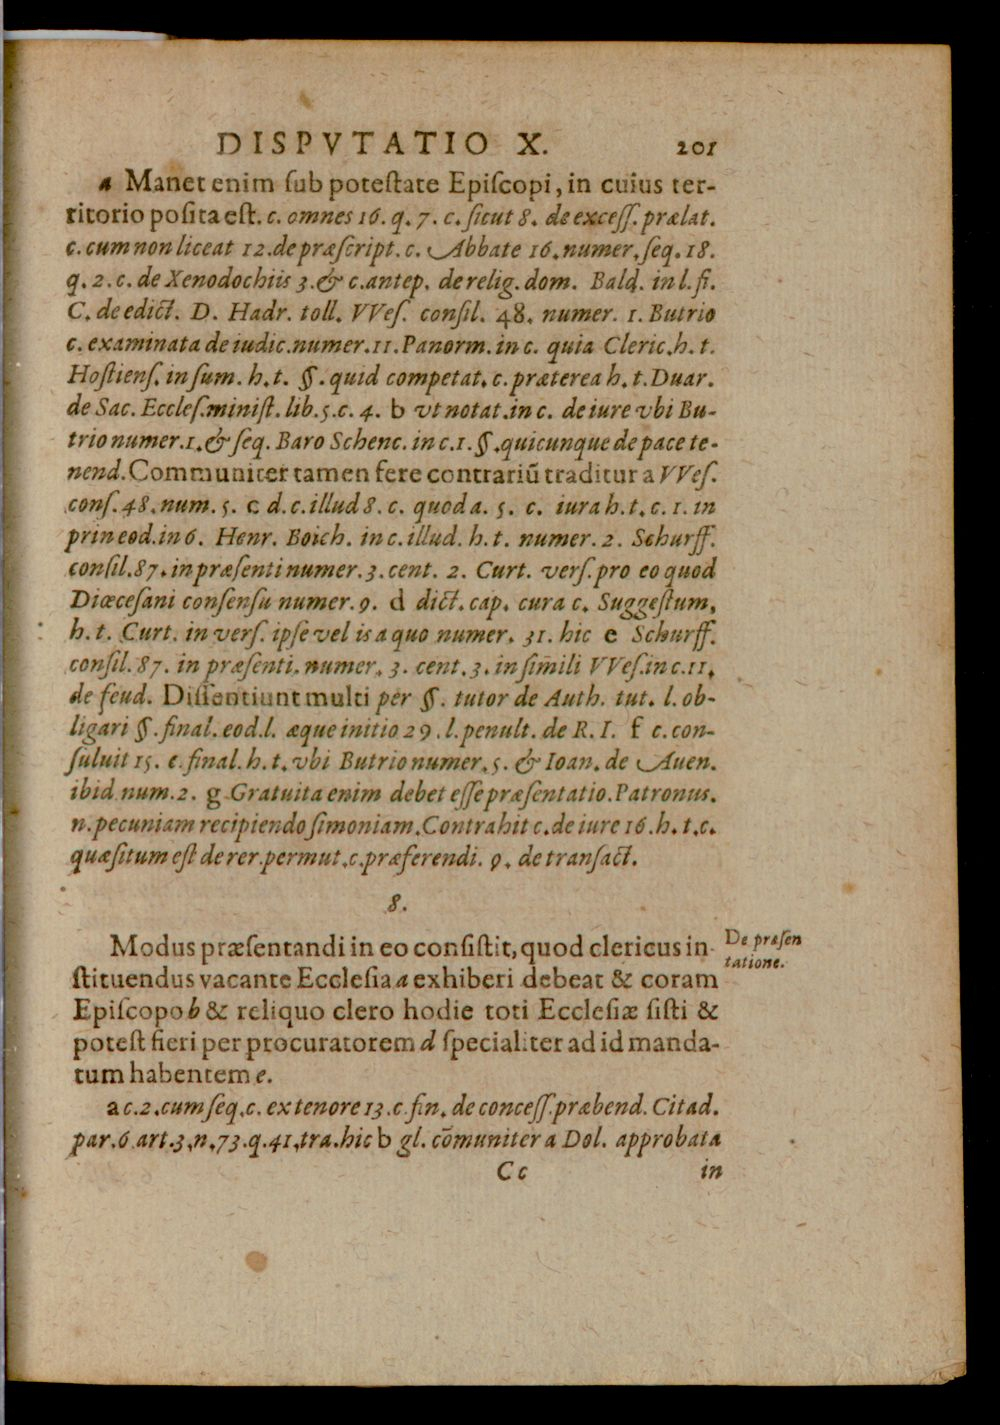 DISPVTATIO X. 201
a Manet enim ſub poteſtate Epiſcopi, in cuius ter-
ritorio poſita eſt. c. omnes 16. q. 7. c. ſicut 8. de exceſſ. prælat.
c. cum non liceat 12. de præſcript. c. Abbate 16. numer. ſeq. 18.
q. 2. c. de Xenodochiis 3. & c. antep. de relig. dom. Bald. in l. fi.
C. de edict. D. Hadr. toll. VVeſ. conſil. 48. numer. 1. Butrio
c. examinata de iudic. numer. 11. Panorm. in c. quia Cleric. h. t.
Hoſtienſ. in ſum. h. t. §. quid competat. c. præterea h. t. Duar.
de Sac. Eccleſ. miniſt. lib. 5. c. 4. b vt notat. in c. de iure vbi Bu-
trio numer. 1. & ſeq. Baro Schenc. in c. 1. §. quicunque de pace te-
nend. Communiter tamen fere contrariũ traditur a VVeſ.
conſ. 48. num. 5. c d. c. illud 8. c. quod a. 5. c. iura h. t. c. 1. in
prin eod. in 6. Henr. Boich. in c. illud. h. t. numer. 2. Schurff.
conſil. 87. in præſenti numer. 3. cent. 2. Curt. verſ. pro eo quod
Diœceſani conſenſu numer. 9. d dict. cap. cura c. Suggeſtum,
h. t. Curt. in verſ. ipſe vel is a quo numer. 31. hic e Schurff.
conſil. 87. in præſenti. numer. 3. cent. 3. in ſimili VVeſ. in c. 11.
de feud. Diſſentiunt multi per §. tutor de Auth. tut. l. ob-
ligari §. final. eod. l. æque initio 29. l. penult. de R. I. f c. con-
ſuluit 15. c. final. h. t. vbi Butrio numer. 5. & Ioan. de Auen.
ibid. num. 2. g Gratuita enim debet eſſe præſentatio. Patronus.
n. pecuniam recipiendo ſimoniam. Contrahit c. de iure 16. h. t. c.
quæſitum eſt de rer. permut. c. præferendi. 9. de tranſact.
8.
Modus præſentandi in eo conſiſtit, quod clericus in-
ſtituendus vacante Eccleſia a exhiberi debeat & coram
Epiſcopo b & reliquo clero hodie toti Eccleſiæ ſiſti &
poteſt fieri per procuratorem d ſpecialiter ad id manda-
tum habentem e.
De præſen
tatione.
a c. 2. cum ſeq. c. ex tenore 13. c. fin. de conceſſ. præbend. Citad.
par. 6. art. 3. n. 73. q. 41. tra. hic b gl. cõmuniter a Dol. approbata
Cc in